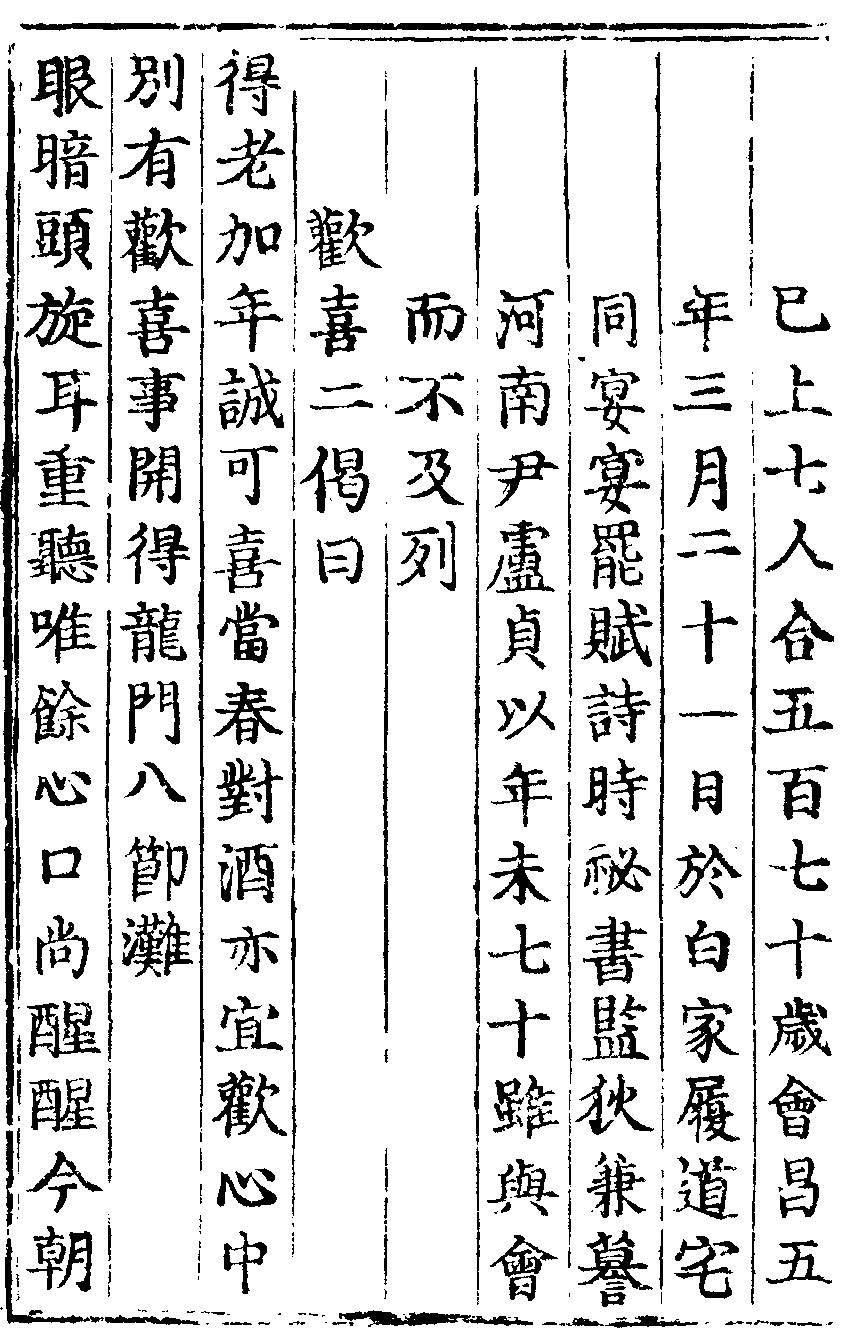 已上七人合五百七十歲會昌五
年三月二十一日於白家履道宅
同宴宴罷賦詩時祕書監狄兼謩
河南尹盧貞以年未七十雖與會
而不及列
歡喜二偈曰
得老加年誠可喜當春對酒亦宜歡心中
別有歡喜事開得龍門八節灘
眼暗頭旋耳重聽唯餘心口尚醒醒今朝